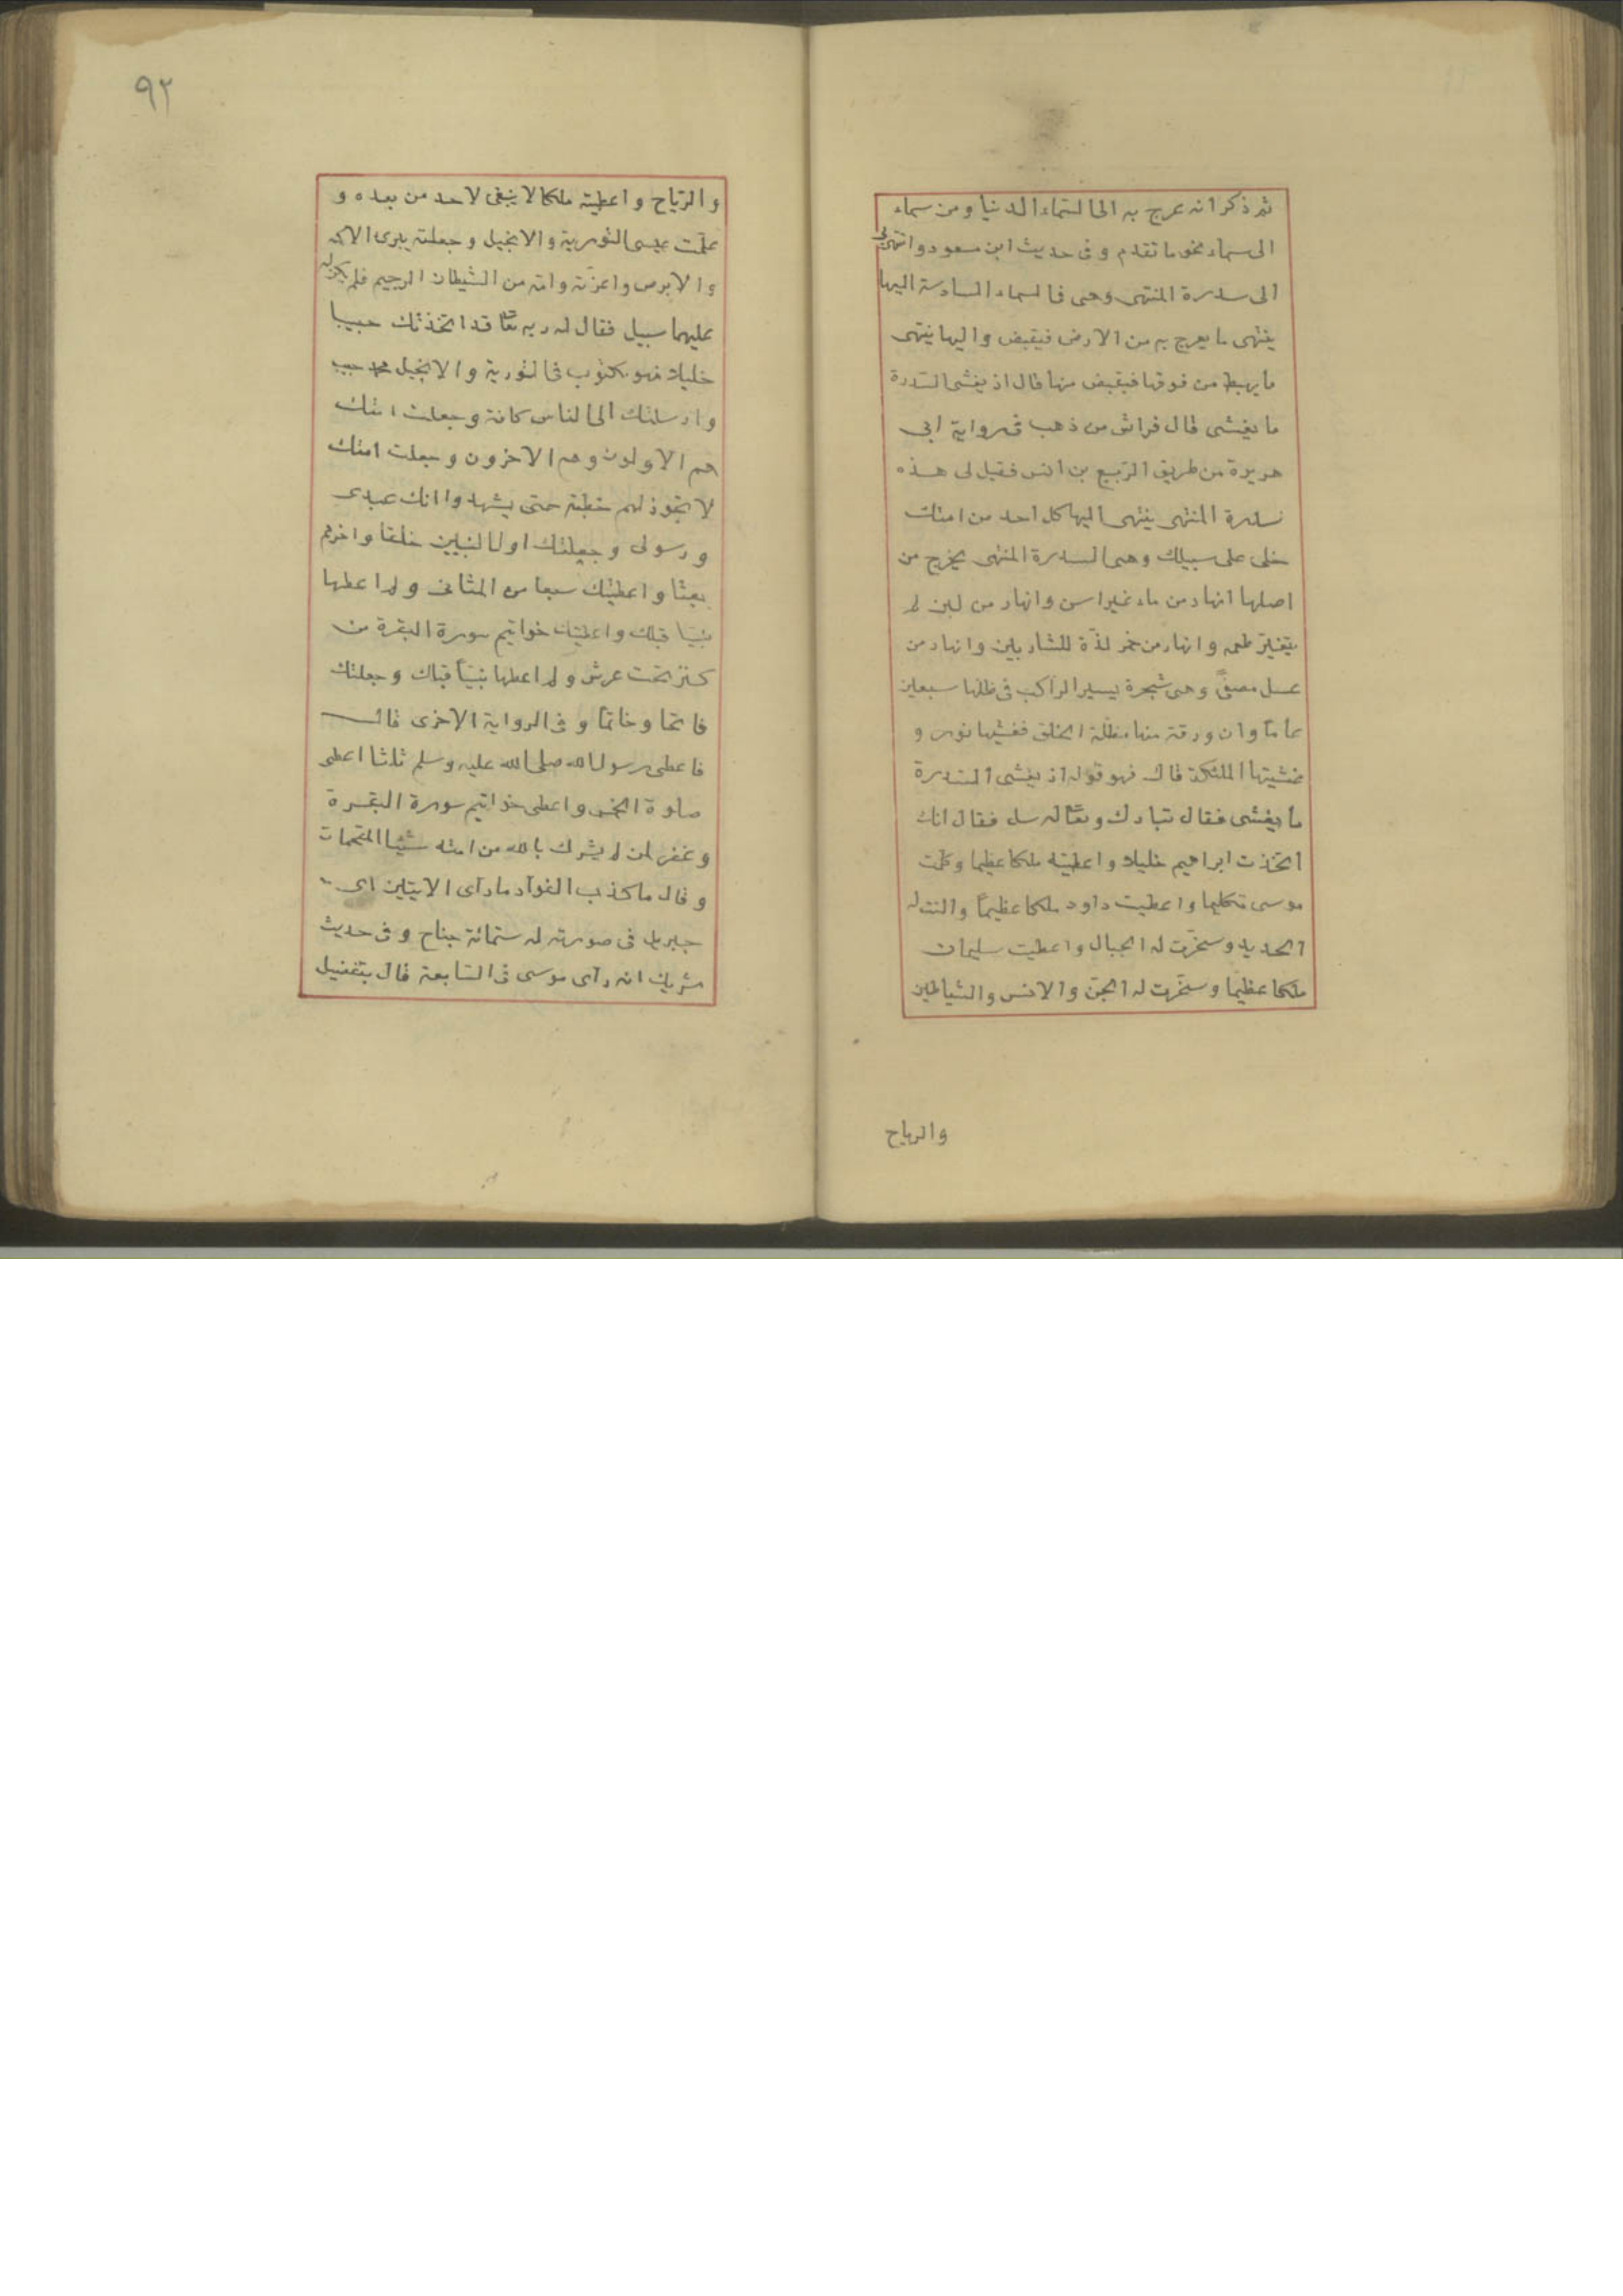 ثم ذكر انه عرج به الى السماء الدنيا ومن سماء
الى سماء نحو ما تقدم وفى حديث ابن مسعود وانتهى بى
الى سدرة المنتهى وهى فى السماء السادسة اليها
ينتهى ما يعرج به من الارض فيقبض واليها ينتهى
ما يهبط من فوقها فيقبض منها قال اذ يغشى السدرة
ما يغشى قال فراش من ذهب فى رواية ابى
هريرة من طريق الربيع بن انس فقيل لى هذه
سدرة المنتهى ينتهى اليها كل احد من امتك
خلى على سبيلك وهى السدرة المنتهى يخرج من
اصلها انهار من ماء غير اسن وانهار من لبن لم
يتغير طعمه وانهار من خمر لذّة للشاربين وانهار من
عسل مصفىً وهى شجرة يسير الراكب فى ظلها سبعين
عامًا وان ورقة منها مظلّة الخلق فغشيها نور و
غشيتها الملئكة قال فهو قوله اذ يغشى السدرة
ما يغشى فقال تبارك وتعا له سل فقال انك
اتخذت ابراهيم خليلا واعطيته ملكا عظيما وكلمت
موسى تكليما واعطيت داود ملكا عظيمًا والنت له
الحديد وسخّرت له الجبال واعطيت سليمان
ملكا عظيمًا وسخّرت له الجنّ والانس والشياطين
والرياح
٩٢
والرّياح واعطيته ملكا لا ينبغى لاحد من بعده و
علّمت عيسى التورية والانجيل وجعلته يبرى الاكمه
والابرص واعذته وامّه من الشيطان الرجيم فلم يكن له
عليهما سبيل فقال له ربه تعا قد اتخذتك حبيبا
خليلا فهو مكتوب فى التورية والانجيل محمد حبيب
وارسلتك الى الناس كافة وجعلت امتك
هم الاولون وهم الاخرون وجعلت امتك
لا تجوز لهم خطبة حتى يشهدوا انك عبدى
ورسولى وجعلتك اول النبيين خلقا واخرهم
بعثا واعطيتك سبعا من المثانى ولم اعطها
نبيّا قبلك واعطيتك خواتيم سورة البقرة من
كنز تحت عرش ولم اعطها نبيّاً قبلك وجعلتك
فاتحا وخاتمًا وفى الرواية الاخرى قال
فاعطى رسول الله صلى الله عليه وسلم ثلثا اعطى
صلوة الخمس واعطى خواتيم سورة البقرة
وغفر لمن لم يشرك بالله من امته شيئا المقحمات
وقال ما كذب الفؤاد ما رآى الايتين اى
جبريل فى صورته له ستمائة جناح وفى حديث
شريك انه رآى موسى فى السّابعة قال بتفضيل